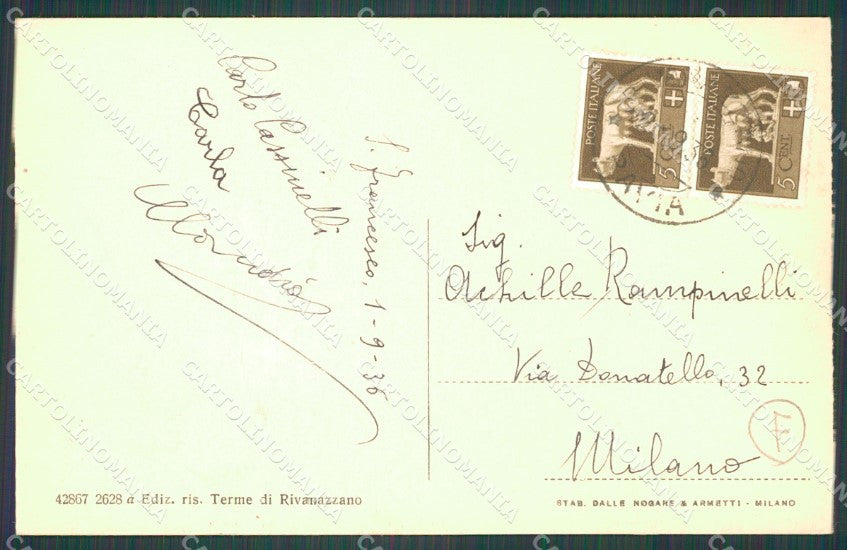 Carlo Cassinelli
Carla
S. Francesco, 1-9-36
POSTE ITALIANE
5 CENT
POSTE ITALIANE
5 CENT
PAVIA
Sig.
Achille Rampinelli
Via Donatello, 32
Milano
42867 2628 a Ediz. ris. Terme di Rivanazzano
STAB. DALLE NOGARE & ARMETTI - MILANO
CARTOLINOMANIA